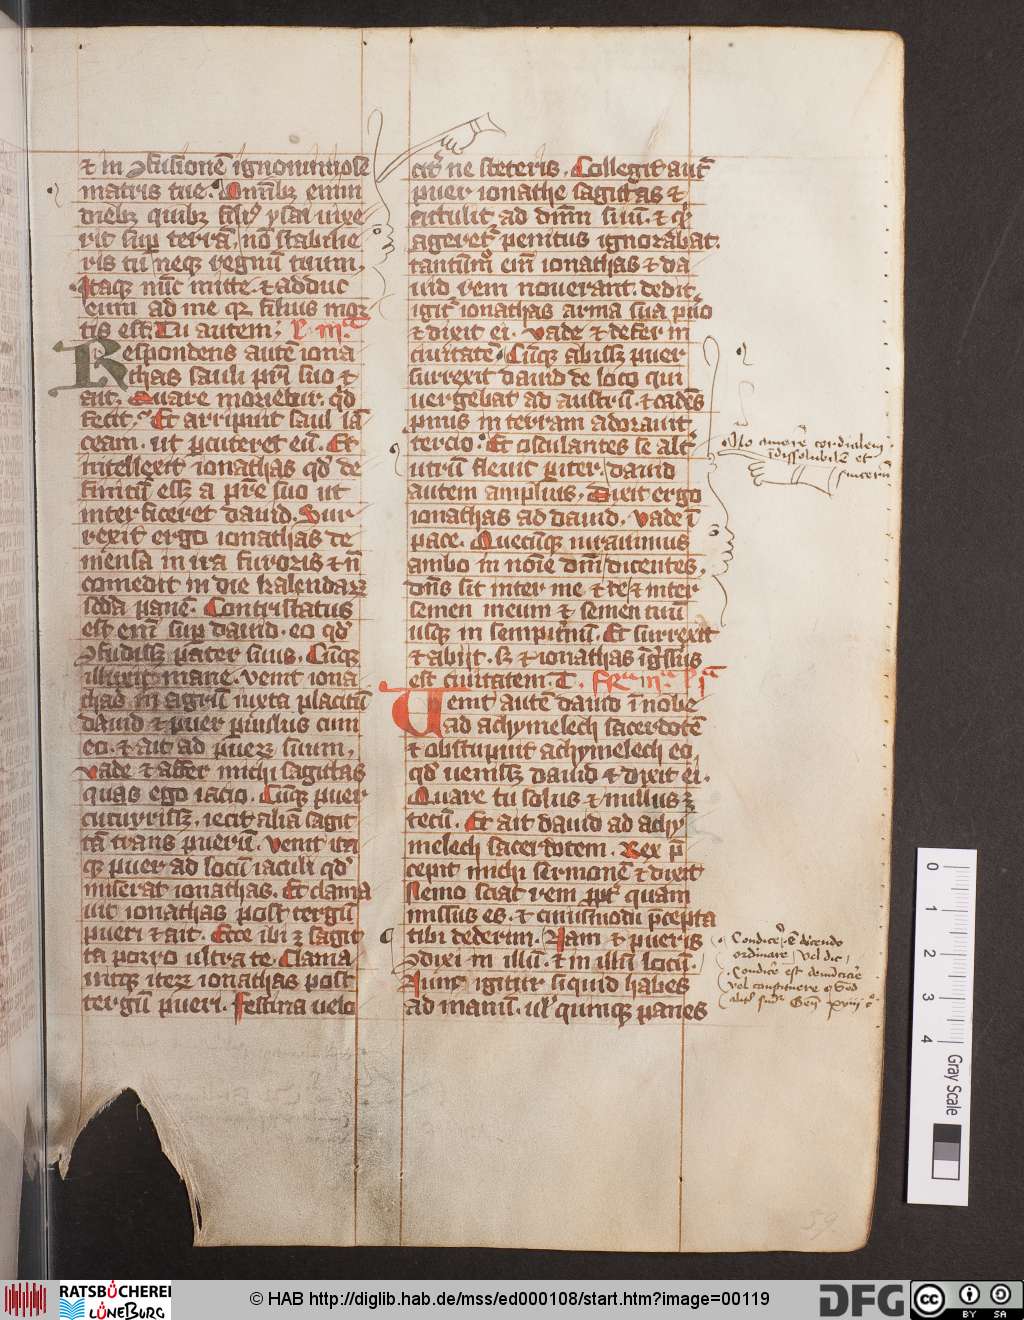 ⁊ in ꝯfusionē ignominiose
matris tue. Omībꝫ enim
diebꝫ quibꝫ filiꝰ ysai uixe
rit sup terrā, nō stabilie
ris tu neqꝫ regnū tuum,
Itaqꝫ nūc mitte. ⁊ adduc
eum ad me qꝛ filius moꝛ
tis est. Tu autem. 
Respondens autē iona
thas sauli pr̄i suo ⁊
ait. Quare morietur. qd̓
fecit. Et arripuit saul lā
ceam. ut ꝑcuteret eū. Et
intellexit ionathas qd̓ de
finitū esset a pr̄e suo ut
interficeret dauid. Sur
rexit ergo ionathas de
mensa in ira furoris ⁊ n̄
comedit in die kalendaꝝ
secda panē. Contristatus
est em̄ sup dauid. eo qd̓
ꝯfudissꝫ pater suus. Cūqꝫ
illuxit mane. venit iona
thas in agrū iuxta placitū
dauid ⁊ puer ꝑuulus cum
eo. ⁊ ait ad pueꝝ suum,
Vade ⁊ affer michi sagittas
quas ego iacio. Cūqꝫ puer
cucurrissꝫ. iecit aliā sagit
tā trans puerū. Venit ita
qꝫ puer ad locū iaculi qd̓
miserat ionathas. Et clama
uit ionathas post tergū
pueri ⁊ ait. Ecce ibi ē sagit
ta porro ultra te. Clama
uitqꝫ iteꝝ ionathas post
tergū pueri. Festina velo
cit̓ ne steteris. Collegit aut̄
puer ionathe sagittas ⁊
attulit ad dn̄m suū. ⁊ qͥd
ageretᷣ penitus ignorabat.
tantūmō em̄ ionathas ⁊ da
uid rem nouerant. dedit
igitᷣ ionathas arma sua puͦo
⁊ dixit ei. Vade ⁊ defer in
ciuitatē. Cūqꝫ abissꝫ puer
surrexit dauid de loco qui
uergebat ad austrū. ⁊ cadēs
pnus in terram adorauit
tercio. Et osculantes se alt̓
utrū fleuit pariter, dauid
autem amplius. Dixit ergo
ionathas ad dauid. Vade ī
pace. Quecūqꝫ iurauimus
ambo in noīe dn̄i dicentes,
dn̄s sit inter me ⁊ te. ⁊ inter
semen meum ⁊ semen tuū
usqꝫ in sempit̓nū. Et surrexit
⁊ abijt. sꝫ ⁊ ionathas īgressus
est ciuitatem. T.
Venit autē dauid ī nobe
ad achymelech sacerdotē
⁊ obstupuit achymelech eo
qd̓ uenissꝫ dauid ⁊ dixit ei.
Quare tu solus ⁊ nullus ē
tecū. Et ait dauid ad achy
melech sacerdotem. Rex p̄
cepit michi sermonē ⁊ dixit
Nemo sciat rem ꝓpt̓ quam
missus es. ⁊ cuiusmodi p̄cepta
tibi dederim. Nam ⁊ pueris
ꝯdixi in illū. ⁊ in illū locū.
Nunc igitur si quid habes
ad manū. ul̓ quinqꝫ panes
No amorē cordialem
īdissolubilē et
sincerū
Condicere ē dicendo
ordinare, vel dic
Condicere est denūciare
vel constituere
Gen̄ xviij cͦ
59
0 1 2 3 4 Gray Scale
RATSBÜCHEREI
LÜNEBURG
© HAB http://diglib.hab.de/mss/ed000108/start.htm?image=00119
DFG
cc BY SA